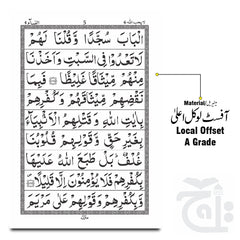 لا یحب اللہ ٦
5
النسآء ٤
الْبَابَ سُجَّدًا وَّقُلْنَا لَهُمْ
لَا تَعْدُوْا فِي السَّبْتِ وَاَخَذْنَا
مِنْهُمْ مِّيْثَاقًا غَلِيْظًا ۝ فَبِمَا
نَقْضِهِمْ مِّيْثَاقَهُمْ وَكُفْرِهِمْ
بِاٰيٰتِ اللّٰهِ وَقَتْلِهِمُ الْاَنْۢبِيَآءَ
بِغَيْرِ حَقٍّ وَّقَوْلِهِمْ قُلُوْبُنَا
غُلْفٌ ؕ بَلْ طَبَعَ اللّٰهُ عَلَيْهَا
بِكُفْرِهِمْ فَلَا يُؤْمِنُوْنَ اِلَّا قَلِيْلًا ۝
وَّبِكُفْرِهِمْ وَقَوْلِهِمْ عَلٰى مَرْيَمَ
Material/میٹیریل
آفسٹ لوکل اعلیٰ
Local Offset
A Grade